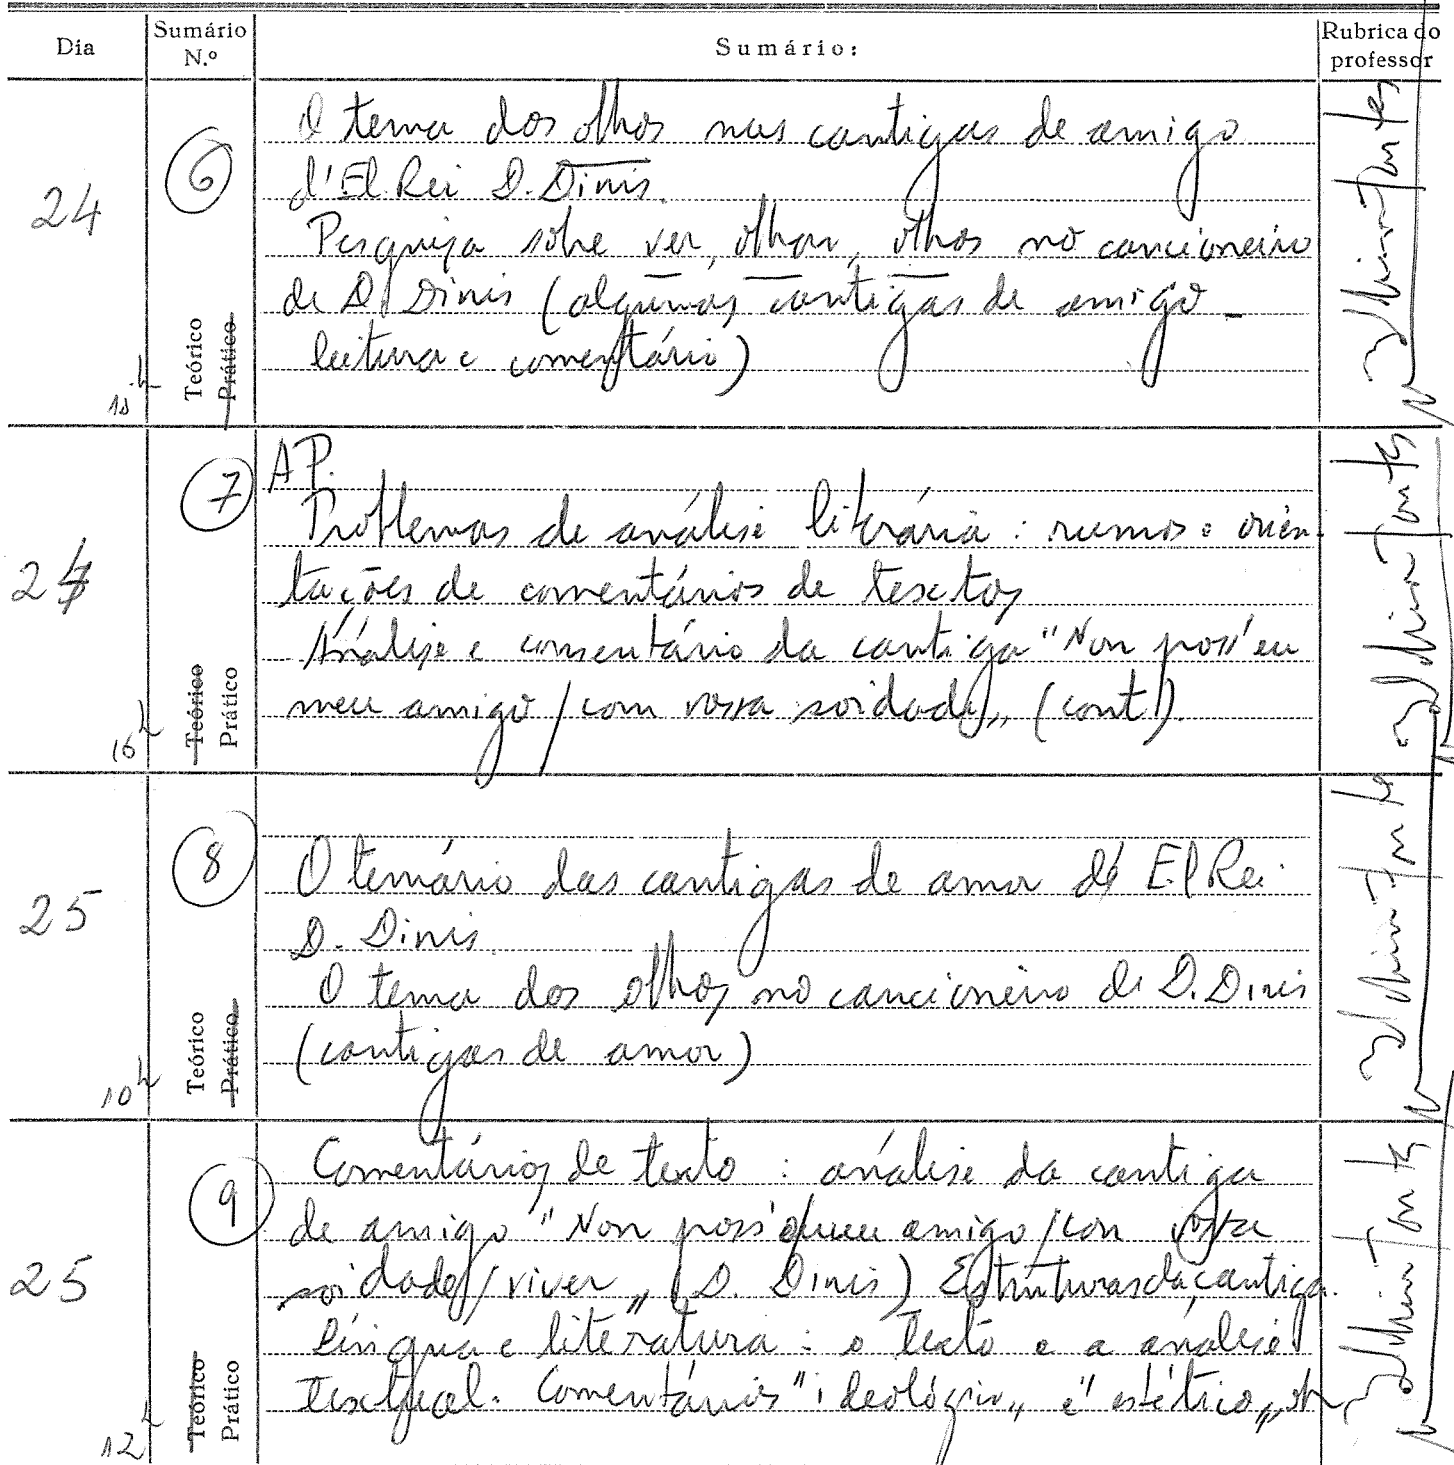 Dia
Sumário N.º
Sumário:
Rubrica do professor
24
6
Teórico
Prático
O tema dos olhos nas cantigas de amigo
d'El Rei D. Dinis.
Pesquisa sobre ver, olhar, olhos no cancioneiro
de D. Dinis (algumas cantigas de amigo –
leitura e comentário)
24
7
16h
Teórico
Prático
AP.
Problemas de análise literária: rumos e orien-
tações de comentários de textos
Análise e comentário da cantiga "Non poss'eu
meu amigo / com vossa soidade" (cont.).
25
8
10h
Teórico
Prático
O temário das cantigas de amor de El Rei
D. Dinis.
O tema dos olhos no cancioneiro de D. Dinis
(cantigas de amor)
25
9
12h
Teórico
Prático
Comentários de texto: análise da cantiga
de amigo "Non poss'eu meu amigo / con vossa
soidade / viver" (D. Dinis) Estruturas da cantiga.
Língua e literatura: o texto e a análise
textual. Comentários "ideológico" e "estético"